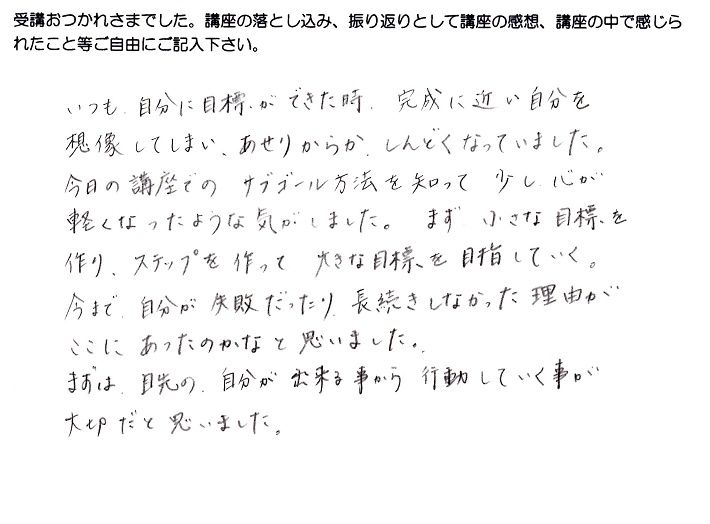 受講おつかれさまでした。講座の落とし込み、振り返りとして講座の感想、講座の中で感じら
れたこと等ご自由にご記入下さい。
いつも、自分に目標ができた時、完成に近い自分を
想像してしまい、あせりからか、しんどくなっていました。
今日の講座での サブゴール方法を知って 少し心が
軽くなったような気がしました。 まず、小さな目標を
作り、ステップを作って 大きな目標を目指していく。
今まで、自分が失敗だったり、長続きしなかった理由が
ここに あったのかなと思いました。
まずは、目先の、自分が出来る事から 行動していく事が
大切だと思いました。